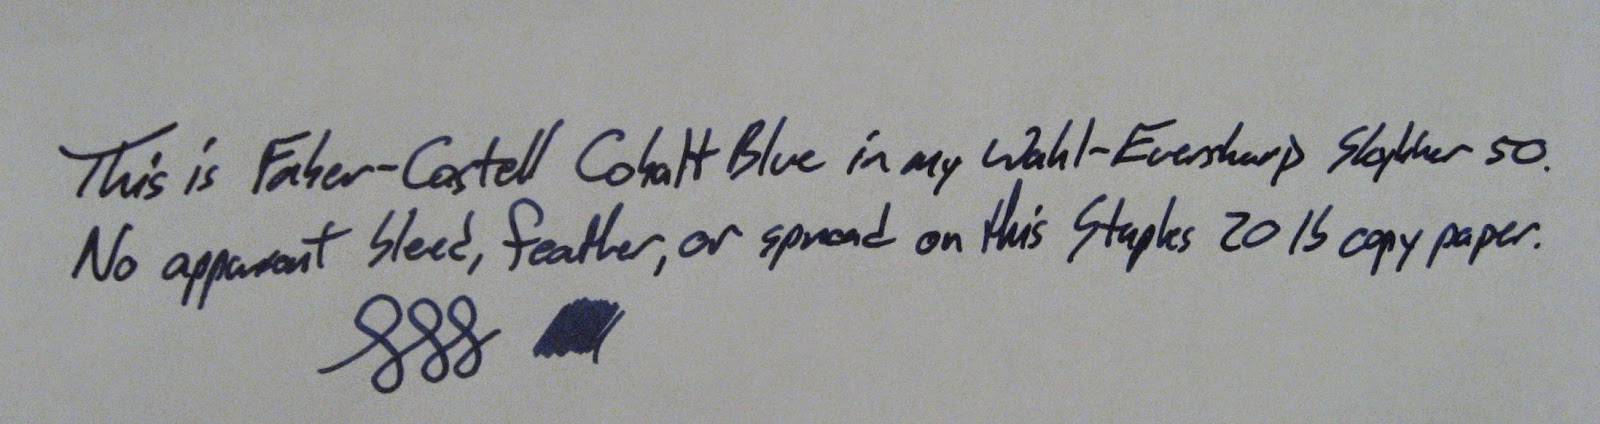 This is Faber-Castell Cobalt Blue in my Wahl-Eversharp Skyliner 50.
No apparent bleed, feather, or spread on this Staples 20 lb copy paper.